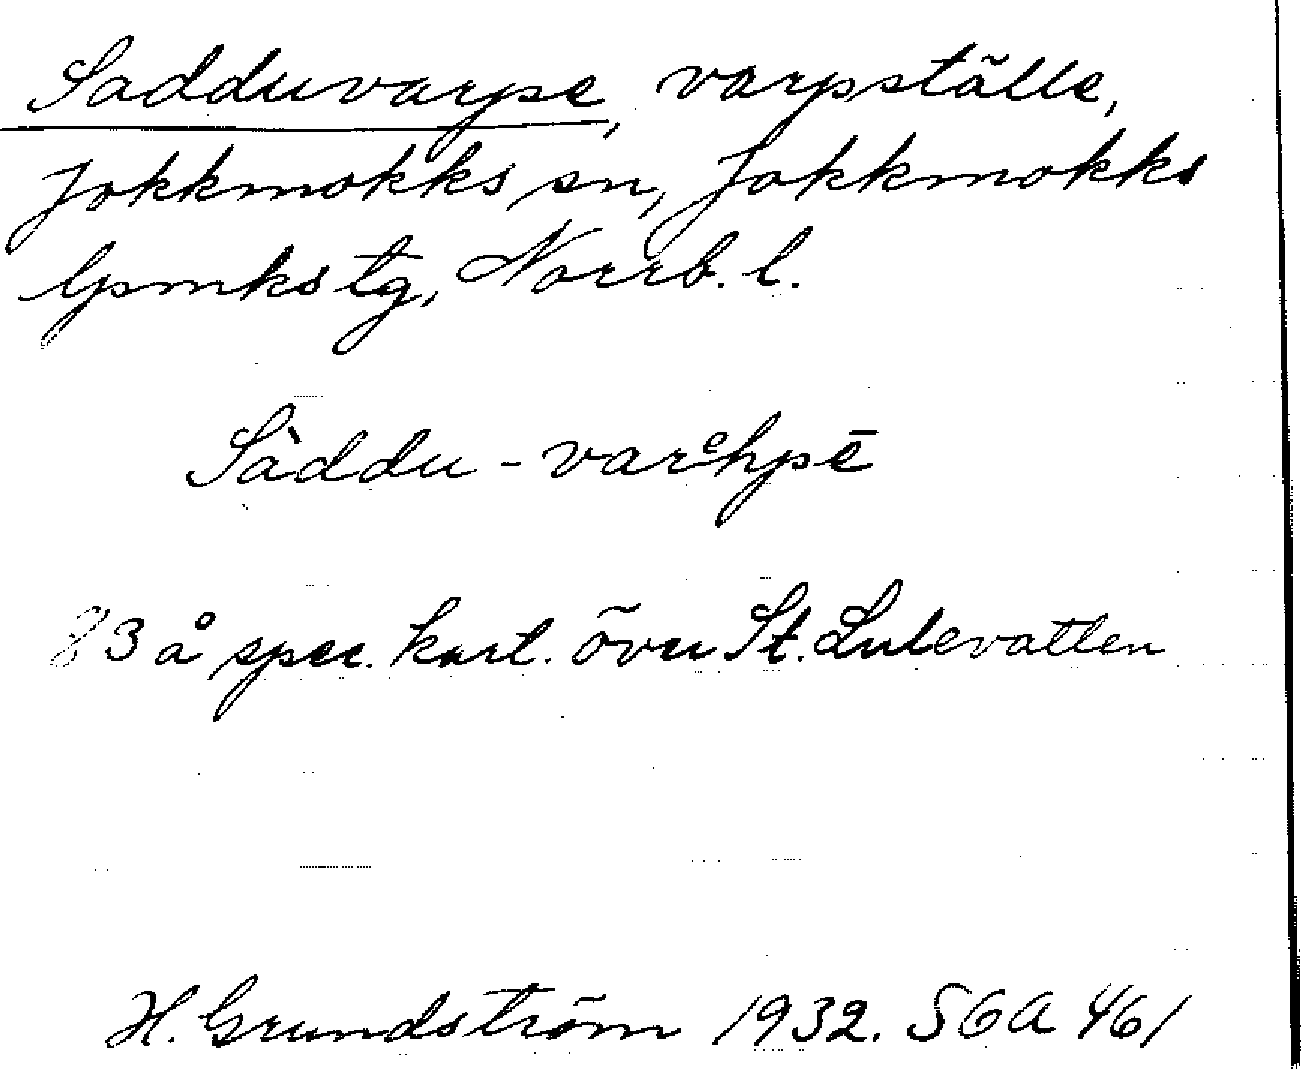 Sadduvarpe, varpställe,
Jokkmokks sn, Jokkmokks
lpmks tg, Norrb. l.
Sàddu-varᵉhpē
83 å spec. kart. över St. Lulevatten
H. Grundström 1932. SGA 461